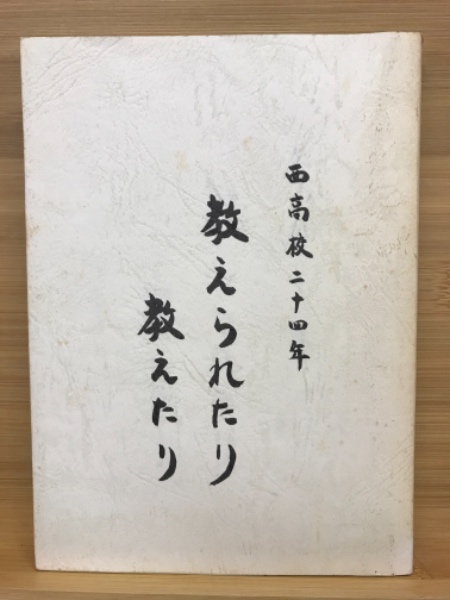 西高校二十四年
教えられたり
教えたり